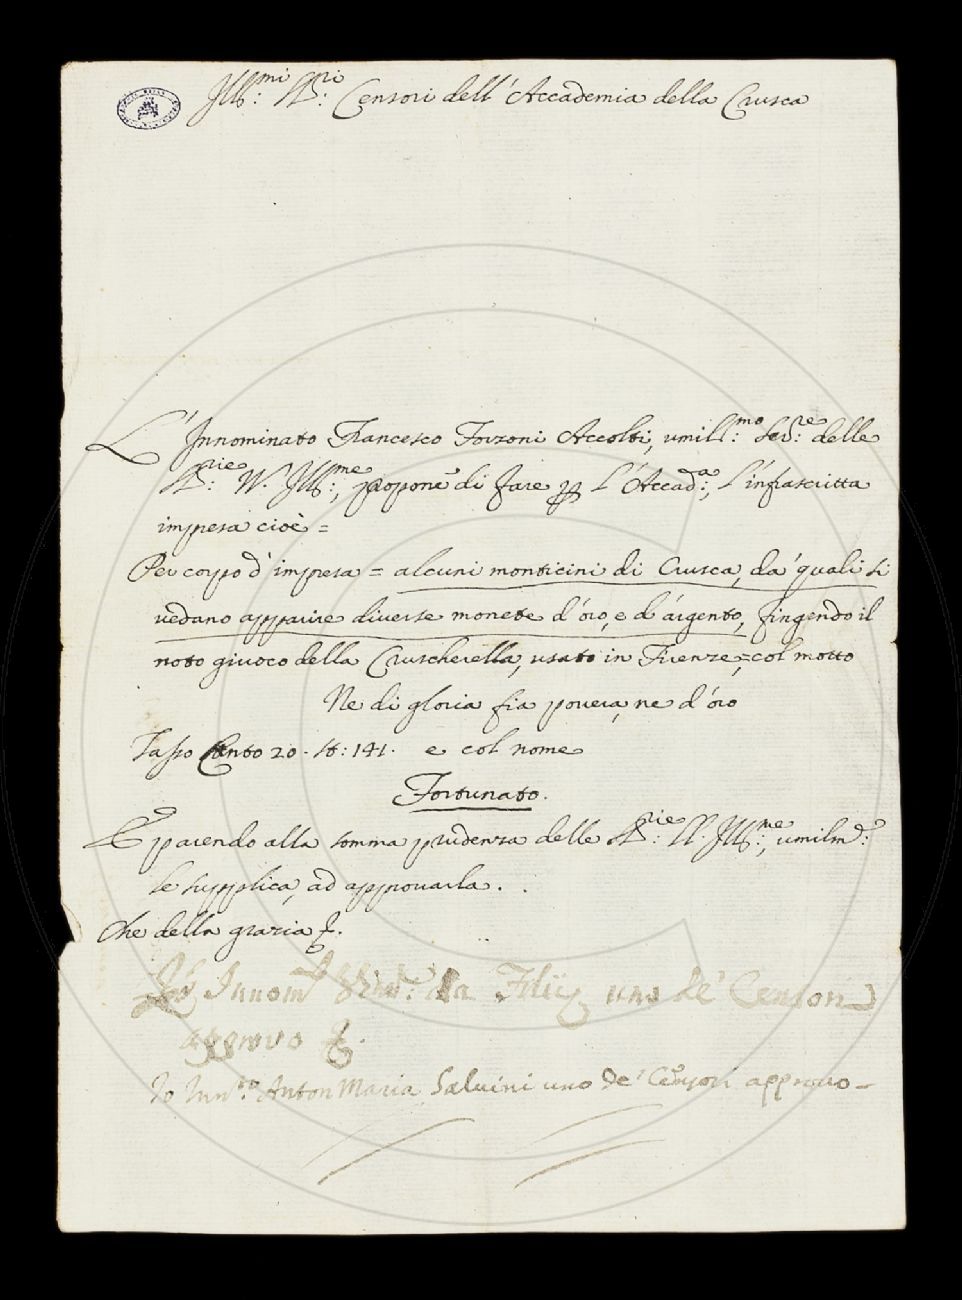 Ill:mi SS:ri Censori dell'Accademia della Crusca
L'Innominato Francesco Forzoni Accolti, umill:mo Ser:re delle
SS:rie VV. Ill:me, propone di fare p l'Accad:a, l'infrascritta
impresa cioè =
Per corpo d'impresa = alcuni monticini di Crusca, da' quali si
vedano apparire diverse monete d'oro, e d'argento, fingendo il
noto giuoco della Cruscherella, usato in Firenze; col motto
Ne di gloria fia povera, ne d'oro
Tasso Canto 20. st: 141. e col nome
Fortunato.
E parendo alla somma prudenza delle SS:rie LL. Ill:me, umilm:e
le supplica, ad approvarla.
Che della grazia &.
Innom da Filic uno de' Censori
approvo &.
Io Inn:to Anton Maria Salvini uno de' Censori approvo –